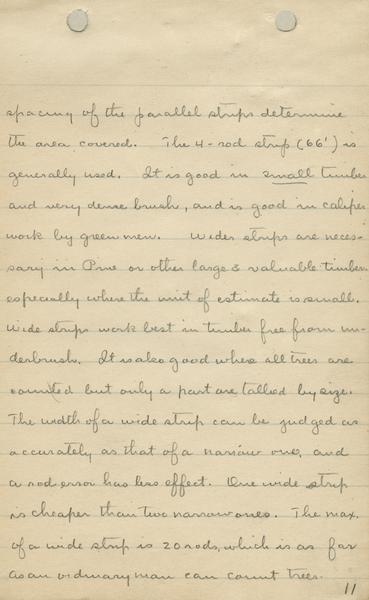 spacing of the parallel strips determine
the area covered. The 4-rod strip (66') is
generally used. It is good in small timber
and very dense brush, and is good in caliper
work by green men. Wider strips are neces-
sary in Pine or other large & valuable timber
especially where the unit of estimate is small.
Wide strips work best in timber free from un-
derbrush. It is also good where all trees are
counted but only a part are tallied by size.
The width of a wide strip can be judged as
accurately as that of a narrow one, and
a rod error has less effect. One wide strip
is cheaper than two narrow ones. The max.
of a wide strip is 20 rods, which is as far
as an ordinary man can count trees.
11